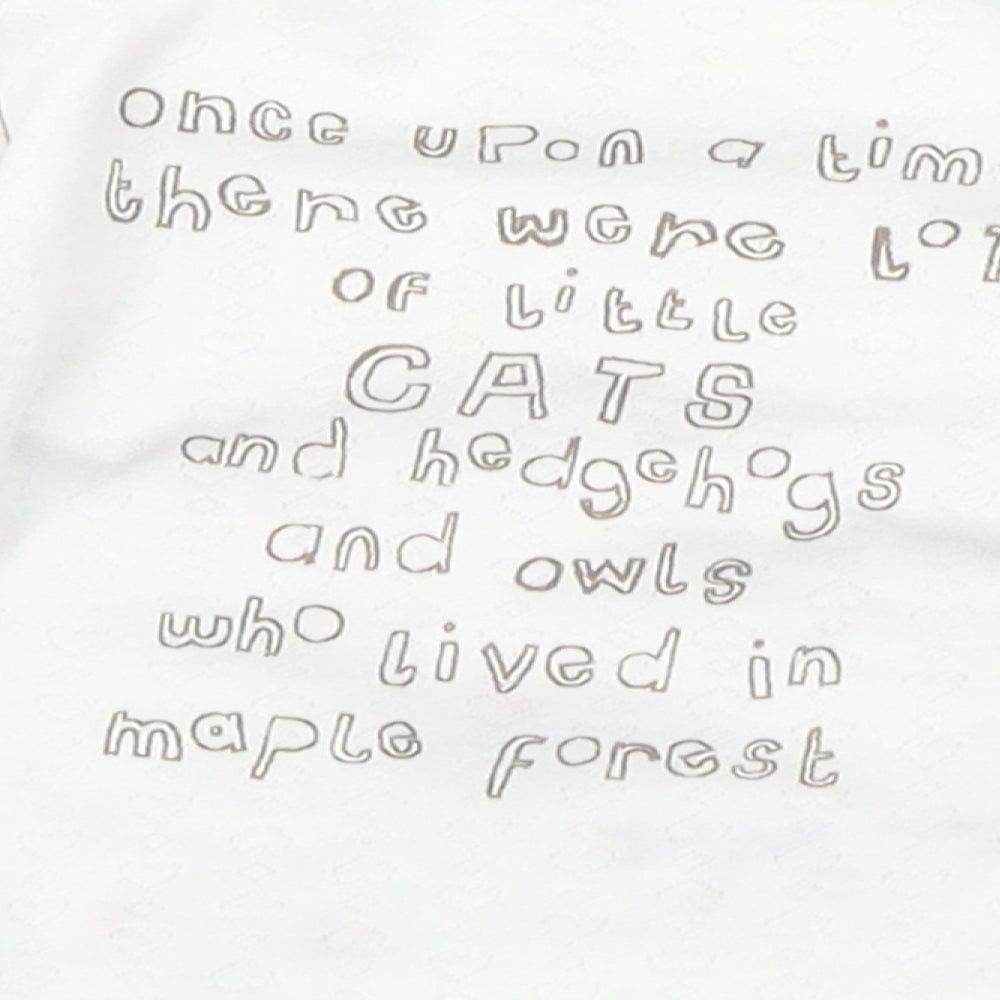 once upon a tim
there were lot
of little
CATS
and hedgehogs
and owls
who lived in
maple forest